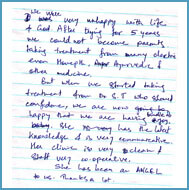 we were
very unhappy with life
& God. After trying for 5 years
we could not become parents
taking treatment from many doctors
even Homeopath, Ayurvedic &
other medicine.
But when we started taking
treatment from Dr. S.T we
confidence, we are now
happy that we are having
baby. She has the best
knowledge & is very communicative
Her clinic is very clean &
Staff very co-operative.
She has been an ANGEL
to us. Thanks a lot